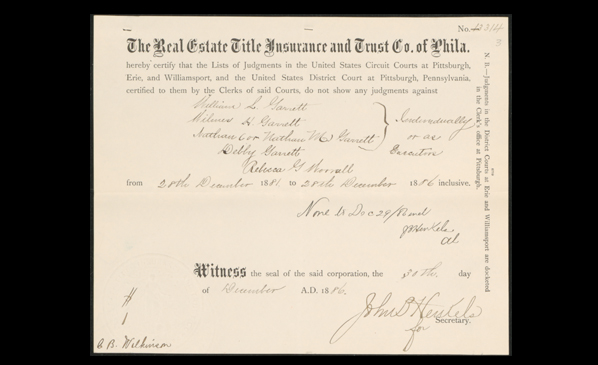 No. 2314
3
The Real Estate Title Insurance and Trust Co. of Phila.
hereby certify that the Lists of Judgments in the United States Circuit Courts at Pittsburgh,
Erie, and Williamsport, and the United States District Court at Pittsburgh, Pennsylvania,
certified to them by the Clerks of said Courts, do not show any judgments against
William L. Garrett
Wilmer H Garrett
Nathan C or Nathan M Garrett
Debby Garrett
Rebecca G Worrall
Individually
or as
Executive
from 28th December 1881 to 28th December 1886 inclusive.
None to Dec 29/86
Witness the seal of the said corporation, the 30th day
of December A.D. 1886.
John S Henkels
for Secretary.
C. B. Wilkinson
N. B.—Judgments in the District Courts at Erie and Williamsport are docketed
in the Clerk's office at Pittsburgh.